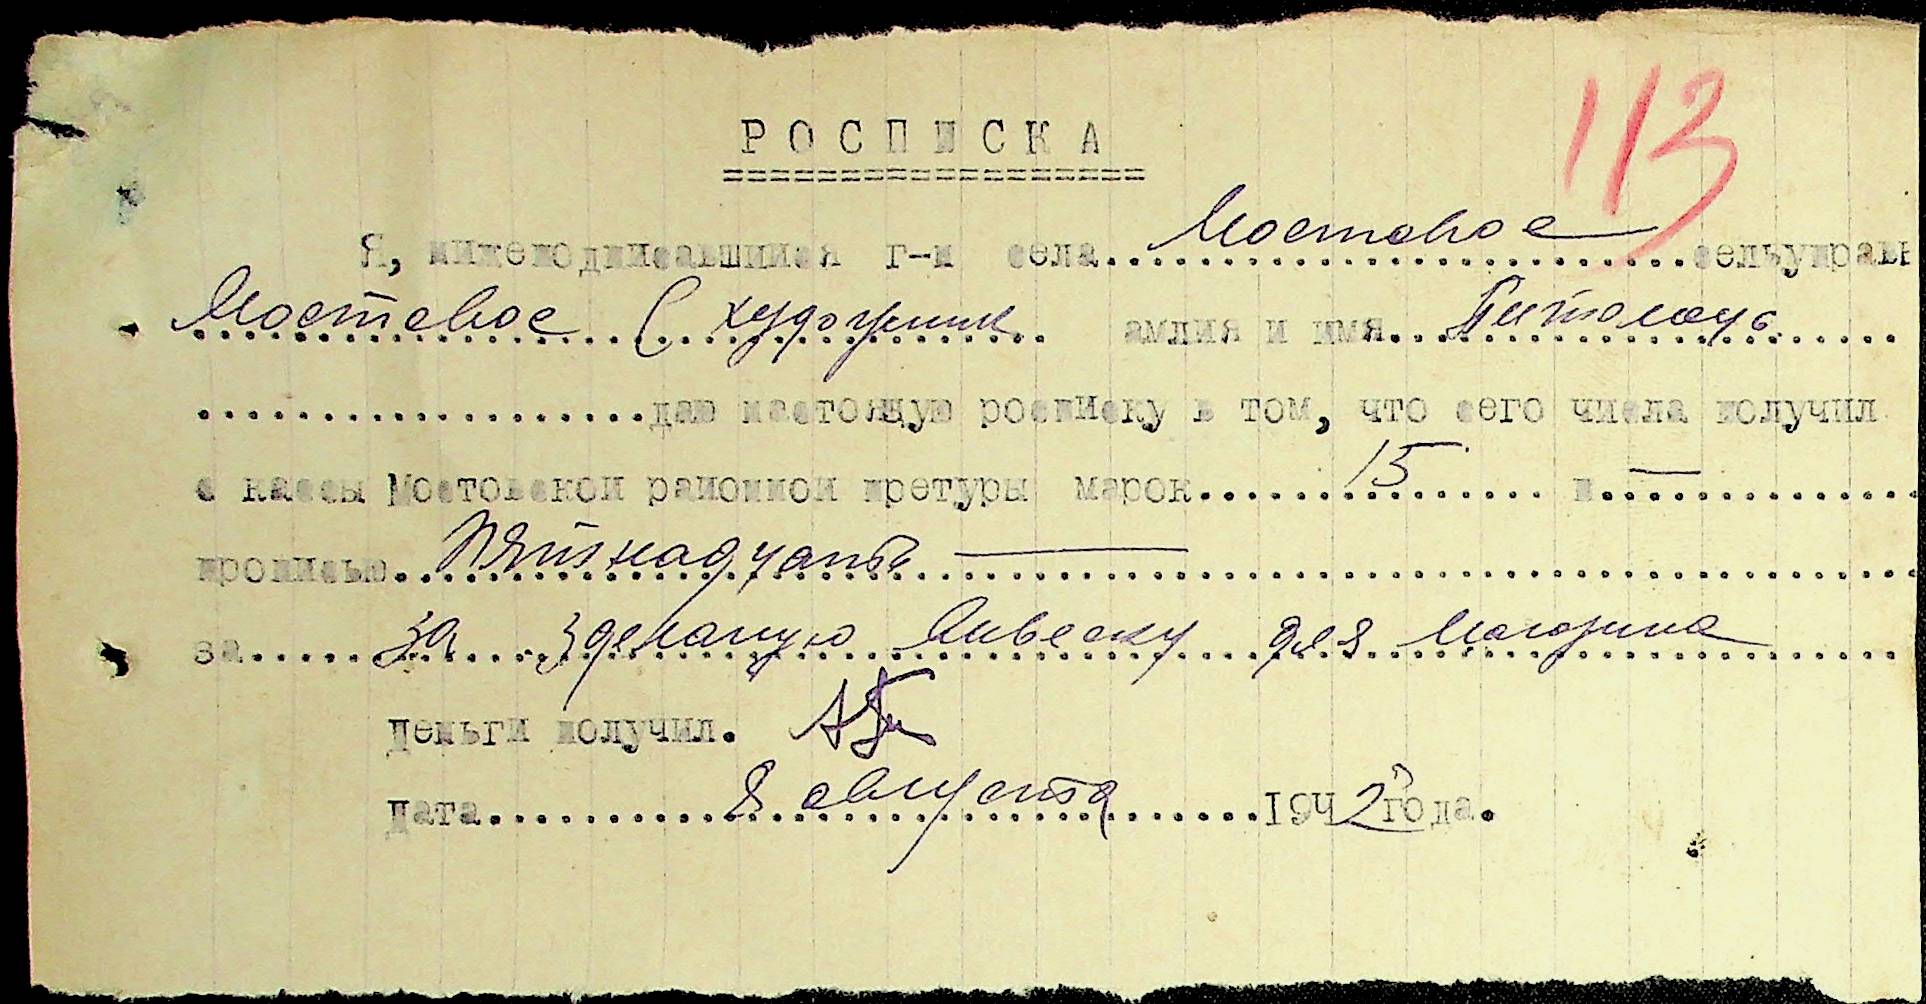 113
РОСПИСКА
Я, нижеподписавшийся г-н села Мостовое сельуправ
Мостовое (художник амлия и имя
даю настоящую росписку в том, что сего числа получил
с кассы Мостовской районной претуры марок 15 п. —
прописью Пятнадцать —
за за зделаную вивеску для магазина
Деньги получил.
Дата 8 августа 1942 года.